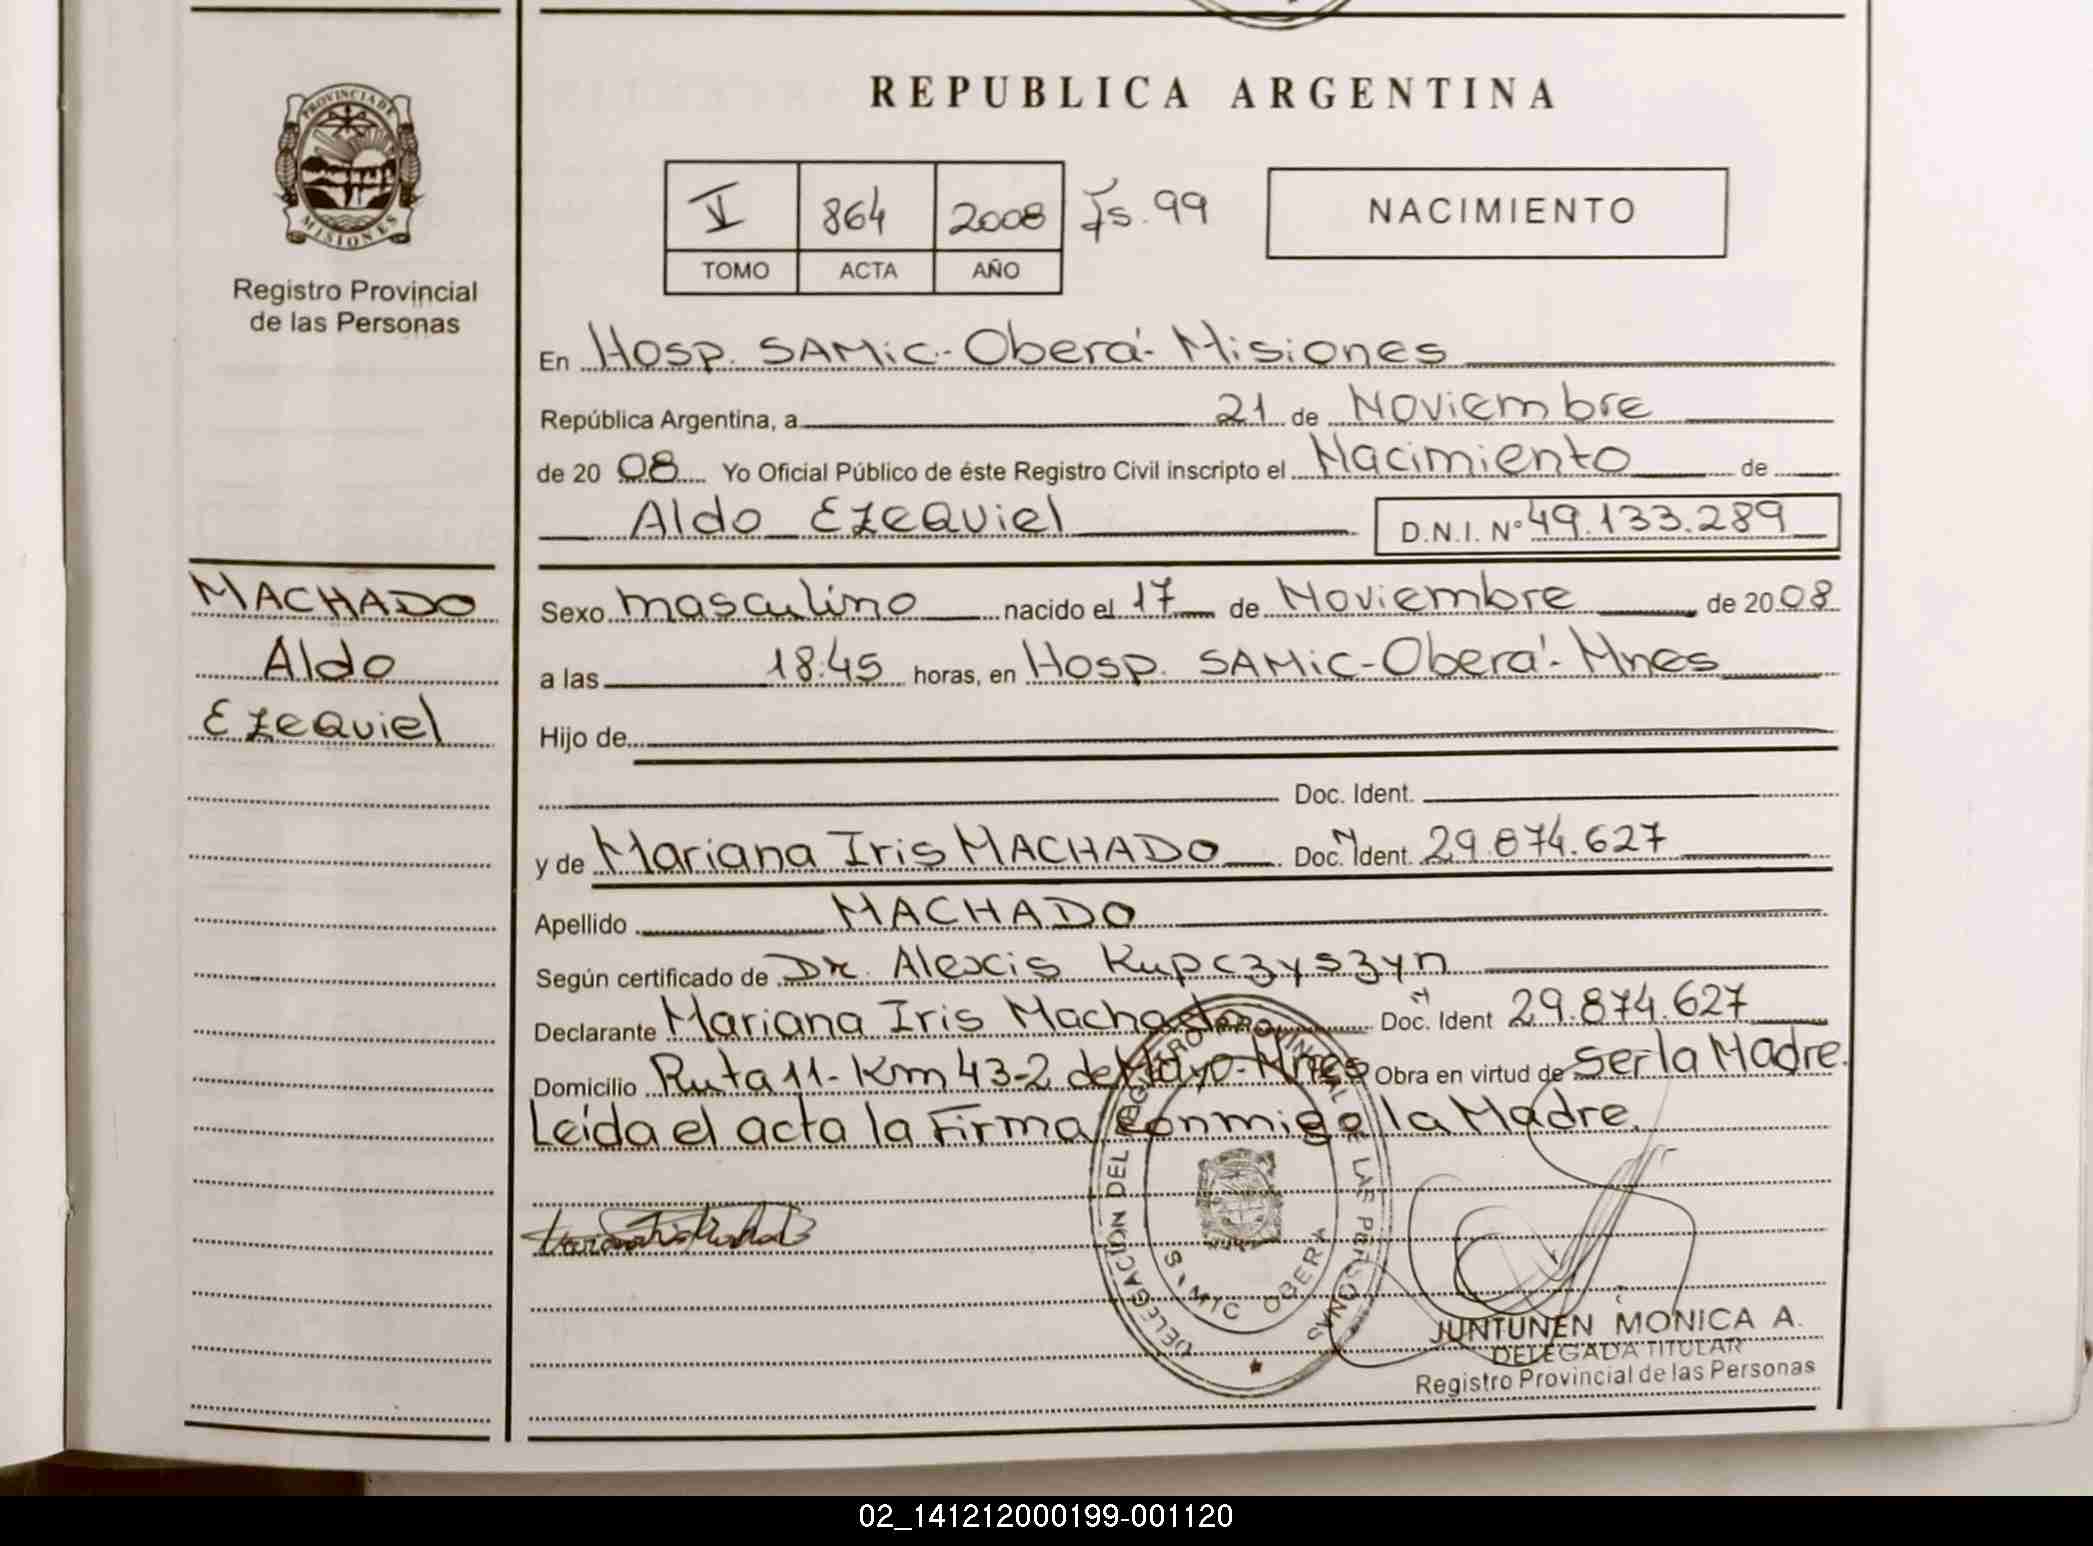 REPUBLICA ARGENTINA
PROVINCIA DE
MISIONES
Registro Provincial
de las Personas
V 864 2008 Fs. 99
TOMO ACTA AÑO
NACIMIENTO
En Hosp. SAMiC-Oberá-Misiones
República Argentina, a 21 de Noviembre
de 2008 Yo Oficial Público de éste Registro Civil inscripto el Nacimiento de
Aldo Ezequiel D.N.I. Nº 49.133.289
MACHADO
Aldo
Ezequiel
Sexo masculino nacido el 17 de Noviembre de 2008
a las 18:45 horas, en Hosp. SAMiC-Oberá-Mnes
Hijo de
Doc. Ident.
y de Mariana Iris MACHADO Doc. N Ident. 29.874.627
Apellido MACHADO
Según certificado de Dr. Alexis Kupczyszyn
Declarante Mariana Iris Machado Doc. N Ident 29.874.627
Domicilio Ruta 11-Km 43-2 de Mayo-Mnes Obra en virtud de Ser la Madre.
Leída el acta la Firma conmigo la Madre.
DELEGACION DEL REGISTRO PROVINCIAL DE LAS PERSONAS
OBERA
JUNTUNEN MONICA A.
DELEGADA TITULAR
Registro Provincial de las Personas
02_141212000199-001120